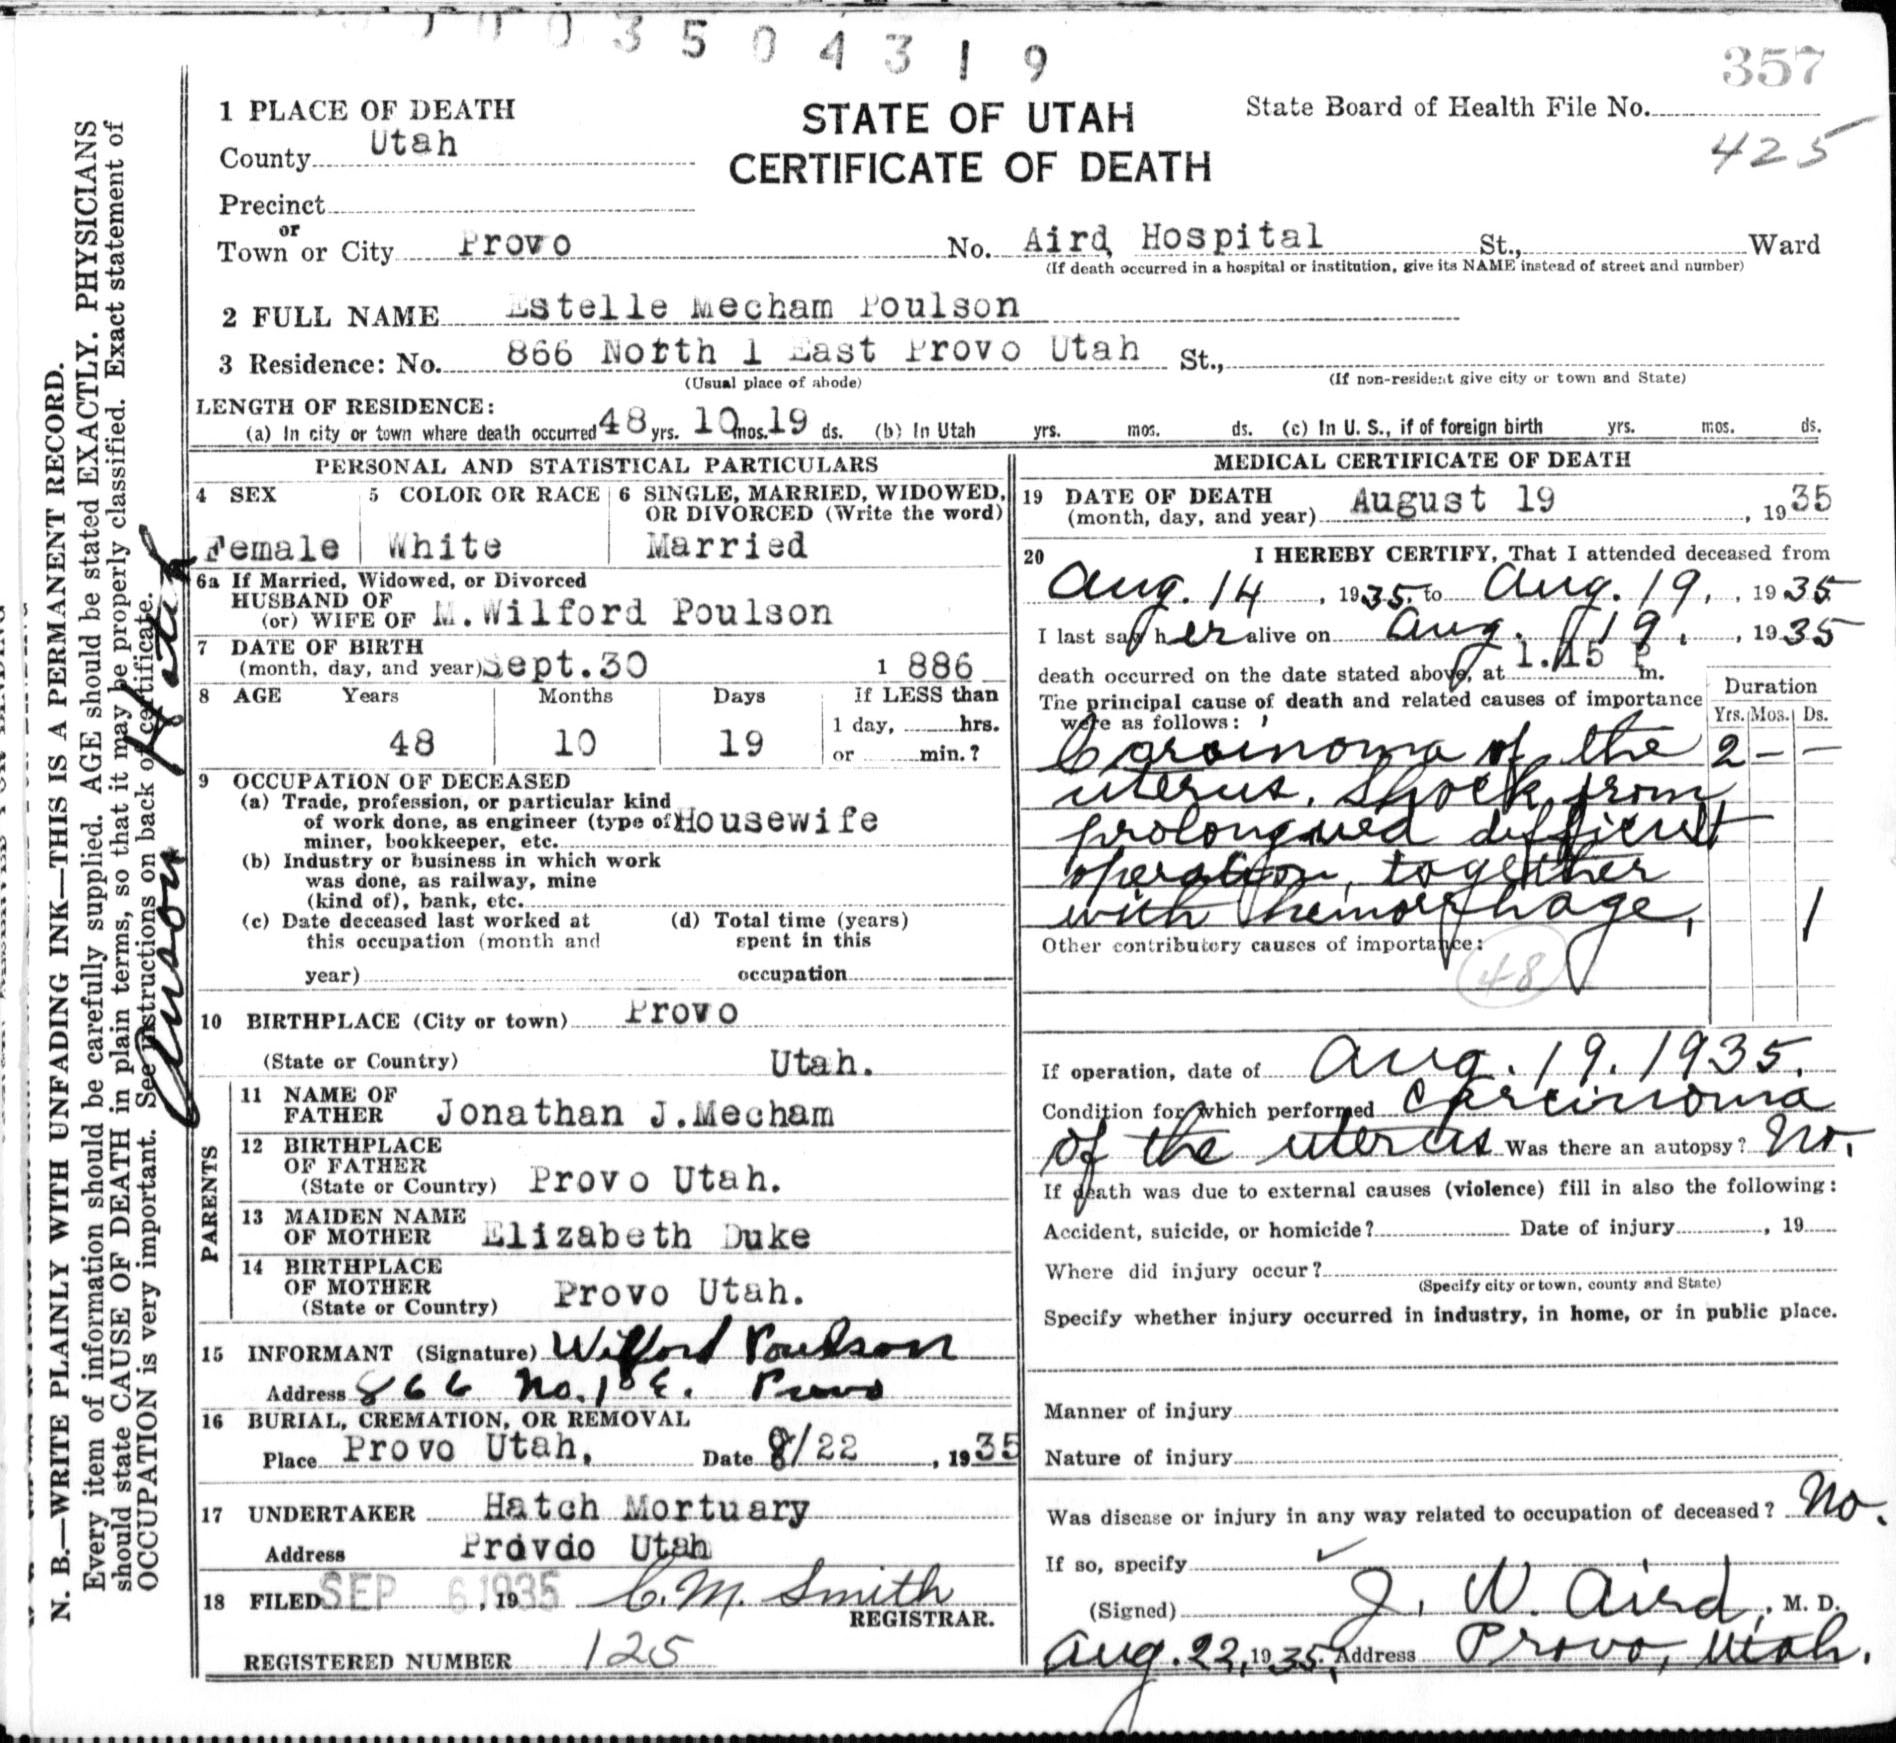 3 5 0 4 3 1 9
357
1 PLACE OF DEATH
STATE OF UTAH
CERTIFICATE OF DEATH
State Board of Health File No.
425
County Utah
Precinct
or
Town or City Provo No. Aird Hospital St., Ward
(If death occurred in a hospital or institution, give its NAME instead of street and number)
2 FULL NAME Estelle Mecham Poulson
3 Residence: No. 866 North 1 East Provo Utah St.,
(Usual place of abode) (If non-resident give city or town and State)
LENGTH OF RESIDENCE:
(a) In city or town where death occurred 48 yrs. 10 mos. 19 ds. (b) In Utah yrs. mos. ds. (c) In U. S., if of foreign birth yrs. mos. ds.
PERSONAL AND STATISTICAL PARTICULARS
4 SEX 5 COLOR OR RACE 6 SINGLE, MARRIED, WIDOWED,
OR DIVORCED (Write the word)
Female White Married
6a If Married, Widowed, or Divorced
HUSBAND OF
(or) WIFE OF M.Wilford Poulson
7 DATE OF BIRTH
(month, day, and year) Sept.30 1 886
8 AGE Years Months Days If LESS than
1 day, hrs.
48 10 19 or min.?
9 OCCUPATION OF DECEASED
(a) Trade, profession, or particular kind
of work done, as engineer (type of) Housewife
miner, bookkeeper, etc.
(b) Industry or business in which work
was done, as railway, mine
(kind of), bank, etc.
(c) Date deceased last worked at (d) Total time (years)
this occupation (month and spent in this
year) occupation
10 BIRTHPLACE (City or town) Provo
(State or Country) Utah.
PARENTS
11 NAME OF
FATHER Jonathan J.Mecham
12 BIRTHPLACE
OF FATHER
(State or Country) Provo Utah.
13 MAIDEN NAME
OF MOTHER Elizabeth Duke
14 BIRTHPLACE
OF MOTHER
(State or Country) Provo Utah.
15 INFORMANT (Signature) Wilford Poulson
Address 866 No. 1st E. Provo
16 BURIAL, CREMATION, OR REMOVAL
Place Provo Utah, Date 8/22, 1935
17 UNDERTAKER Hatch Mortuary
Address Provdo Utah
18 FILED SEP 6 1935, 19 C. M. Smith
REGISTRAR.
REGISTERED NUMBER 125
MEDICAL CERTIFICATE OF DEATH
19 DATE OF DEATH
(month, day, and year) August 19, 1935
20 I HEREBY CERTIFY, That I attended deceased from
Aug. 14, 1935, to Aug. 19, , 1935
I last saw her alive on Aug. 19. , 1935
death occurred on the date stated above, at 1.15 P m.
The principal cause of death and related causes of importance
were as follows:
Duration
Yrs. Mos. Ds.
Carcinoma of the 2 – –
uterus. Shock from
prolongued difficult
operation, together
with hemorrhage, 1
Other contributory causes of importance:
48
If operation, date of Aug. 19. 1935.
Condition for which performed Carcinoma
of the uterus Was there an autopsy? No.
If death was due to external causes (violence) fill in also the following:
Accident, suicide, or homicide? Date of injury , 19
Where did injury occur?
(Specify city or town, county and State)
Specify whether injury occurred in industry, in home, or in public place.
Manner of injury
Nature of injury
Was disease or injury in any way related to occupation of deceased? No.
If so, specify
(Signed) J. W. Aird, M. D.
Aug. 22, 1935, Address Provo, Utah.
N. B.—WRITE PLAINLY WITH UNFADING INK—THIS IS A PERMANENT RECORD.
Every item of information should be carefully supplied. AGE should be stated EXACTLY. PHYSICIANS
should state CAUSE OF DEATH in plain terms, so that it may be properly classified. Exact statement of
OCCUPATION is very important. See instructions on back of certificate.
Anson Hatch